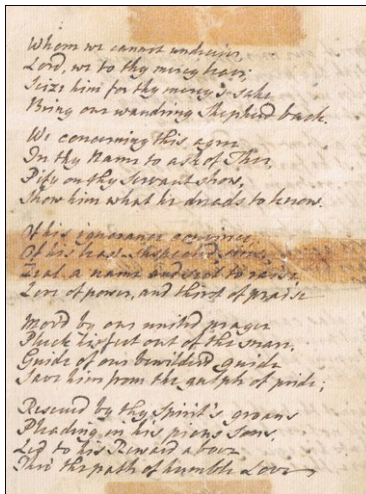 Whom we cannot undeceive,
Lord, we to thy mercy leave;
Seize him for thy mercy's sake
Bring our wandring Shepherd back.
We concerning this agree
In thy Name to ask of Thee,
Pity on thy Servant show,
Show him what he dreads to know.
Of his ignorance convince,
Of his least suspected sins,
Zeal a name and sect to raise
Love of power, and thirst of praise
Mov'd by our united prayer
Pluck his feet out of the snare.
Guide of our bewilder'd guide
Save him from the gulph of pride;
Rescued by thy Spirit's groans
Pleading in his pious Sons,
Led to his Reward above
Thro' the path of humble Love